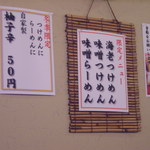 限定メニュー
海老つけめん
味噌つけめん
味噌らーめん
数量限定
つけめんに
らーめんに
自家製
柚子辛
50円